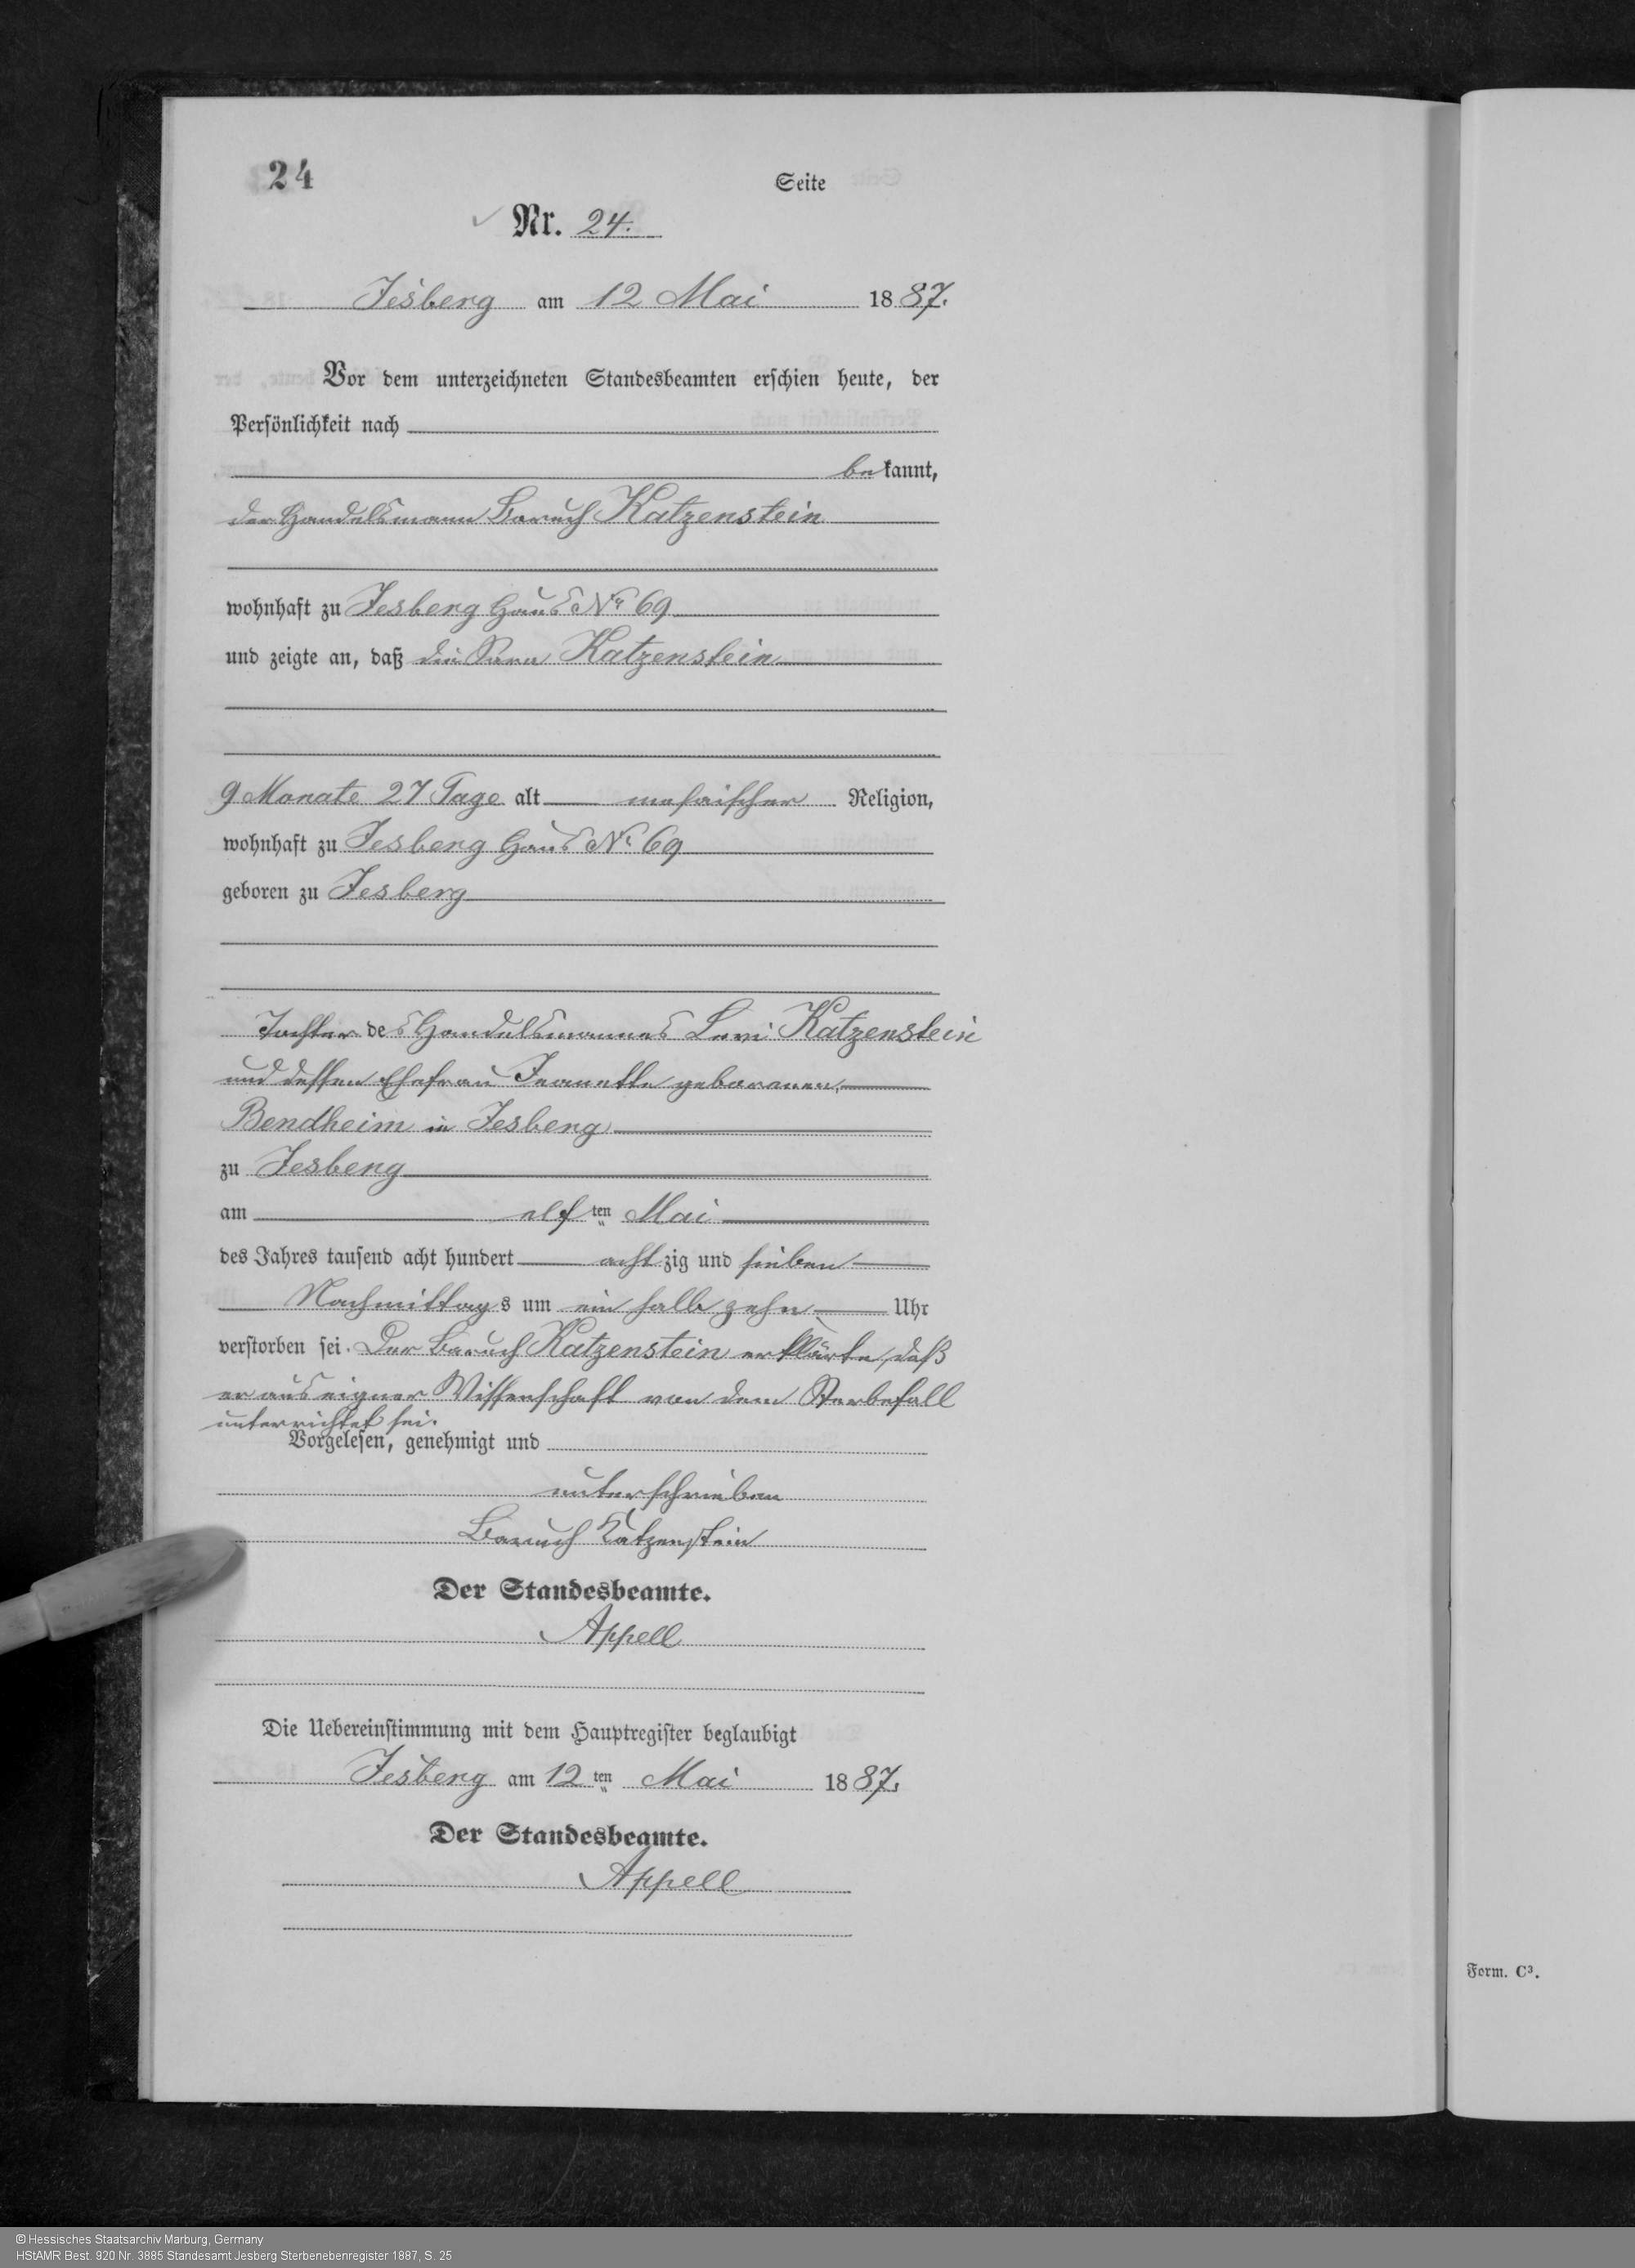 24
Seite
Nr. 24.
Jesberg am 12 Mai 1887.
Vor dem unterzeichneten Standesbeamten erschien heute, der
Persönlichkeit nach
bekannt,
der Handelsmann Baruch Katzenstein
wohnhaft zu Jesberg Haus Nr 69
und zeigte an, daß die Sara Katzenstein
9 Monate 27 Tage alt mosaischer Religion,
wohnhaft zu Jesberg Haus Nr 69
geboren zu Jesberg
Tochter des Handelsmannes Levi Katzenstein
und dessen Ehefrau Jeanette geborenen
Bendheim in Jesberg
zu Jesberg
am elften Mai
des Jahres tausend acht hundert achtzig und sieben
Nachmittags um ein halb zehn Uhr
verstorben sei. Der Baruch Katzenstein erklärte, daß
er aus eigner Wissenschaft von dem Sterbefall
unterrichtet sei.
Vorgelesen, genehmigt und
unterschrieben
Baruch Katzenstein
Der Standesbeamte.
Appell
Die Uebereinstimmung mit dem Hauptregister beglaubigt
Jesberg am 12ten Mai 1887.
Der Standesbeamte.
Appell
Form. C³.
© Hessisches Staatsarchiv Marburg, Germany
HStAMR Best. 920 Nr. 3885 Standesamt Jesberg Sterbenebenregister 1887, S. 25